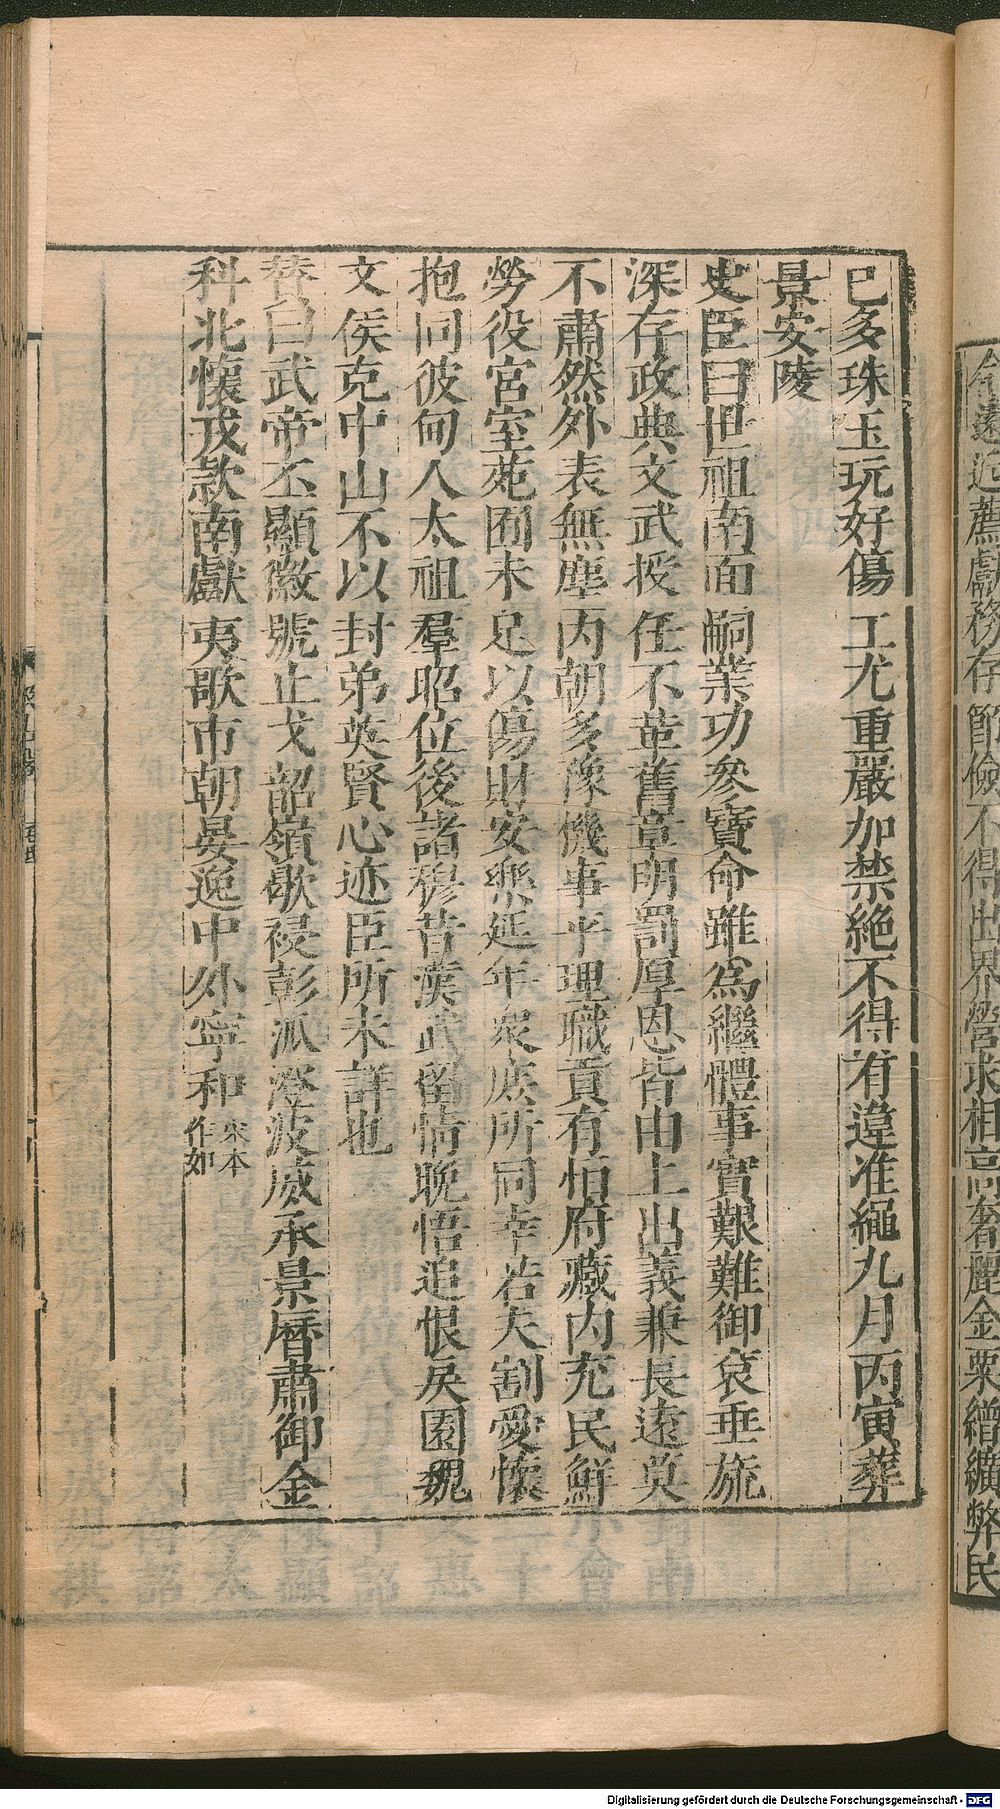 令遠近薦獻務存節儉不得出界營求相高奢麗金粟繒纊弊民
巳多珠玉玩好傷工尤重嚴加禁絕不得有違准繩九月丙寅葬
景安陵
史臣曰世祖南面嗣業功參寶命雖爲繼體事實艱難御袞垂旒
深存政典文武授任不革舊章明罰厚恩皆由上出義兼長遠莫
不肅然外表無塵内朝多豫機事平理職貢有恒府藏内充民鮮
勞役宮室苑囿未足以傷財安樂延年衆庶所同幸若夫割愛懷
抱同彼甸人太祖羣昭位後諸穆昔漢武留情晚悟追恨戾園魏
文侯克中山不以封弟英賢心迹臣所未詳也
替曰武帝丕顯徽號止戈韶嶺歇祲彭派澄波威承景曆肅御金
科北懷戎款南獻夷歌市朝晏逸中外寧和宋本作如
Digitalisierung gefördert durch die Deutsche Forschungsgemeinschaft - DFG